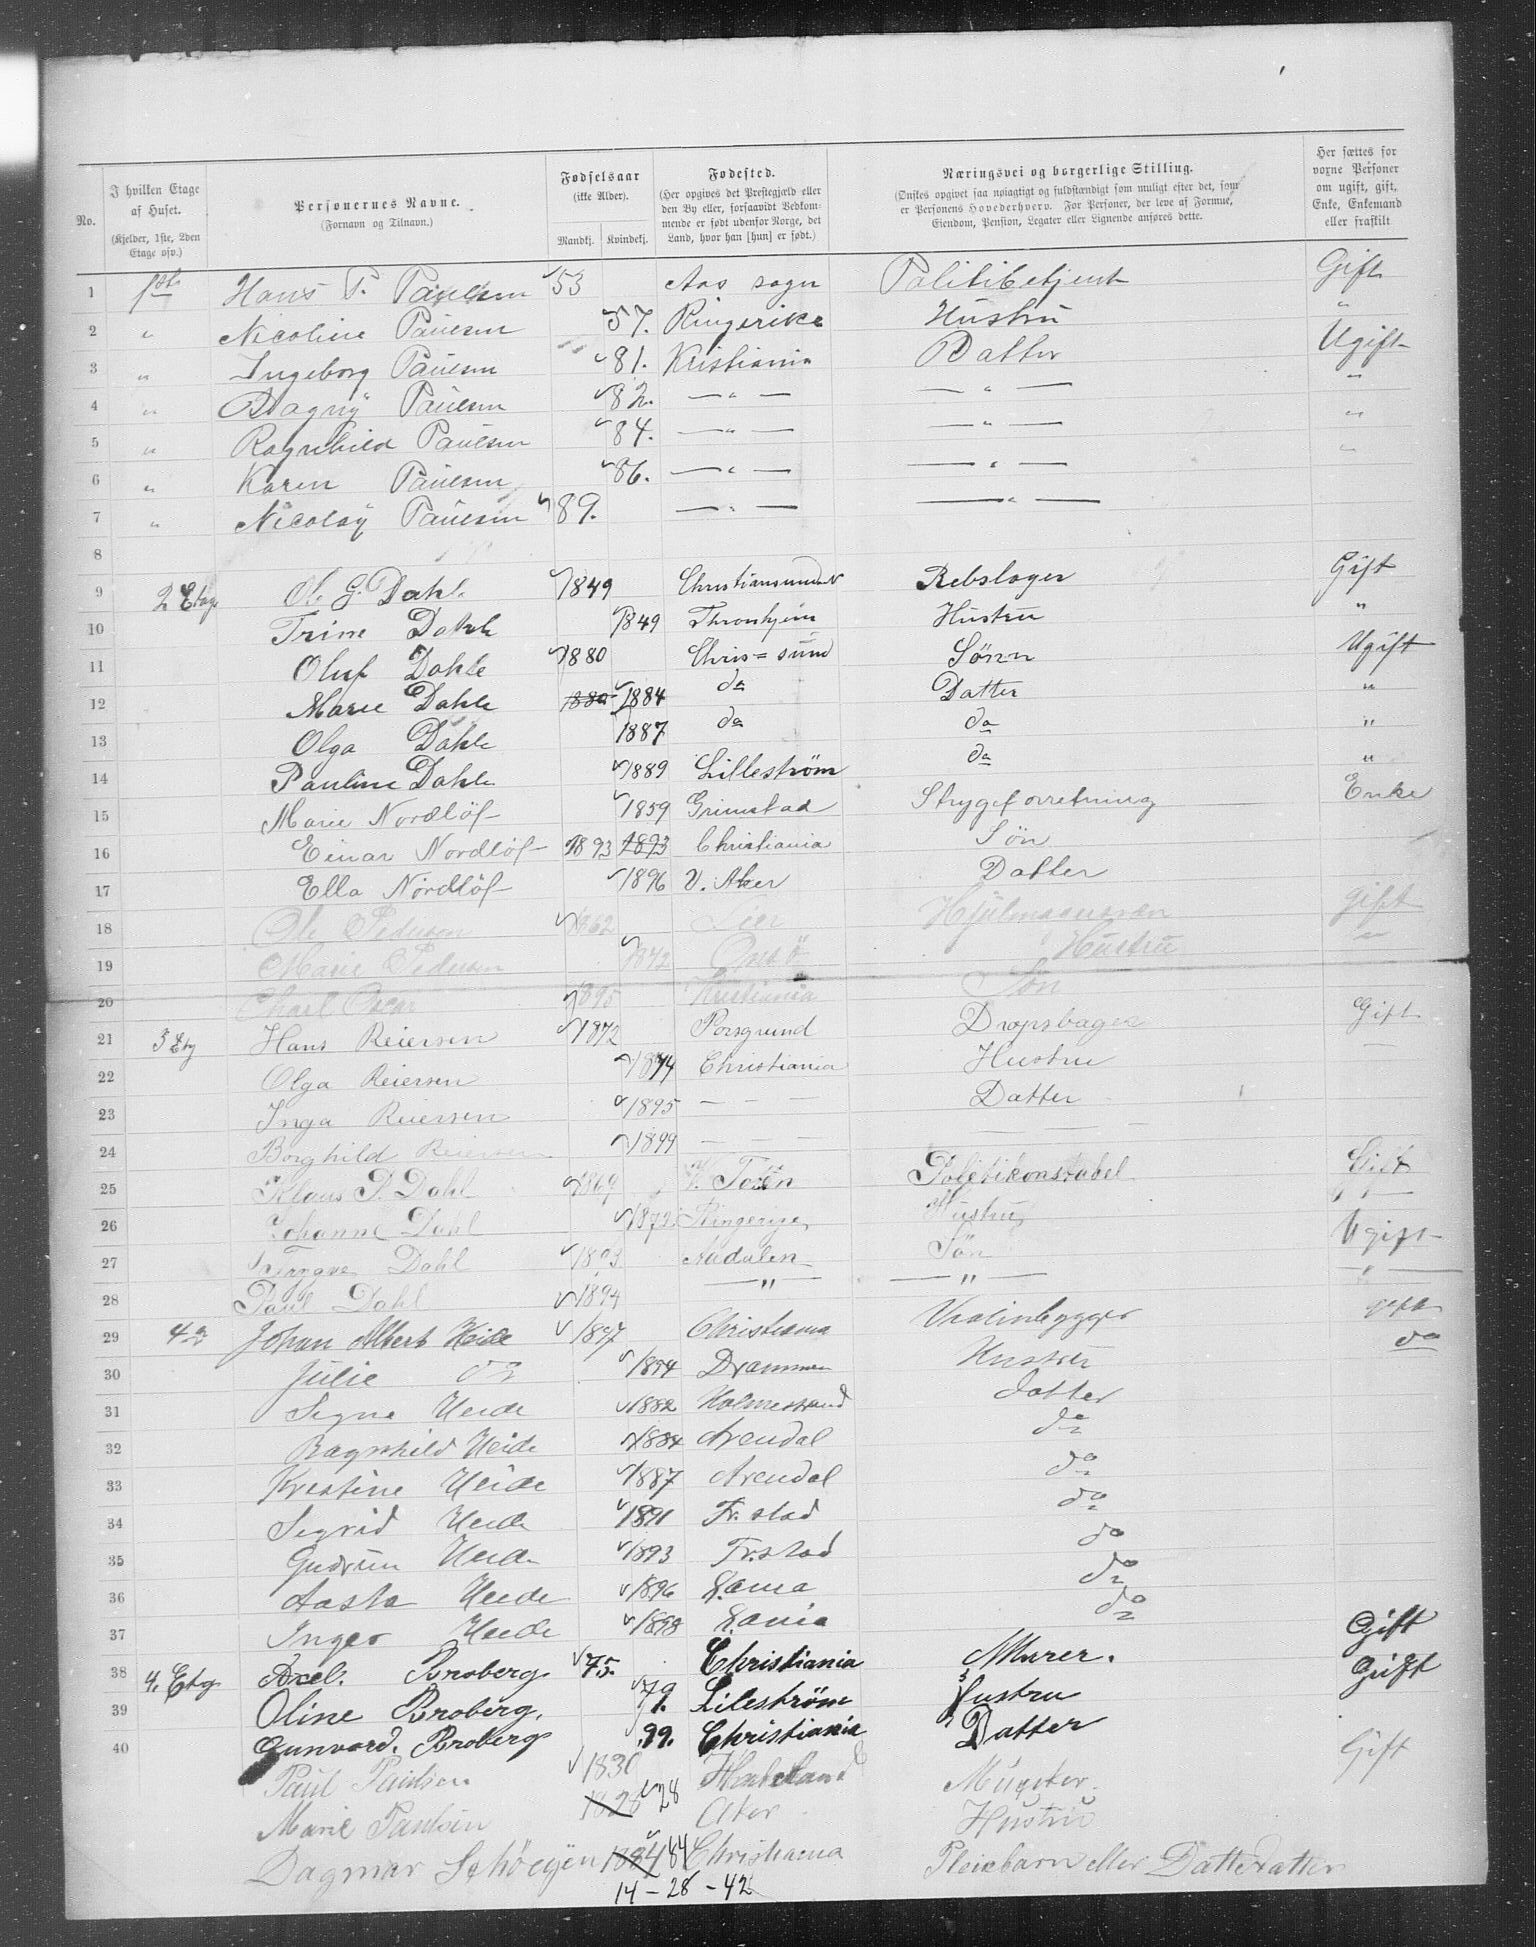 No.
I hvilken Etage af Huset. (Kjelder, 1ste, 2den Etage osv.)
Personernes Navne. (Fornavn og Tilnavn.)
Fødselsaar (ikke Alder). Mandkj. Kvindekj.
Fødested. (Her opgives det Prestegjæld eller den By eller, forsaavidt Vedkommende er født udenfor Norge, det Land, hvor han [hun] er født.)
Næringsvei og borgerlige Stilling. (Ønskes opgivet saa nøiagtigt og fuldstændigt som muligt efter det, som er Personens Hovederhverv. For Personer, der leve af Formue, Eiendom, Pension, Legater eller Lignende anføres dette.
Her sættes for voxne Personer om ugift, gift, Enke, Enkemand eller fraskilt
1 1ste Hans P. Paulsen 53 Aas sogn Politibetjent Gift
2 " Nicoline Paulsen 57. Ringerike Hustru "
3 " Ingeborg Paulsen 81. Kristiania Datter Ugift
4 " Dagny Paulsen 82. — " — — " — "
5 " Ragnhild Paulsen 84. — " — — " — "
6 " Karen Paulsen 86. — " — — " — "
7 " Nicolay Paulsen 89. — " — — " —
8
9 2 Etag Ole G. Dahle 1849 Christiansund N Rebslager Gift
10 Trine Dahle 1849 Thronhjem Hustru "
11 Oluf Dahle 1880 Chris=sund Sönn Ugift
12 Marie Dahle 1880 1884 do Datter "
13 Olga Dahle 1887 do do "
14 Pauline Dahle 1889 Lilleström do "
15 Marie Nordlöf 1859 Grimstad Strygeforretning Enke
16 Einar Nordlöf 1893 1893 Christiania Sön
17 Ella Nordlöf 1896 V. Aker Datter
18 Ole Pedersen 1862 Lier gift
19 Marie Pedersen 1872 Onsö Hustru "
20 Charl Oscar 1895 Kristiania Søn
21 3 Etg Hans Reiersen 1872 Porsgrund Dropsbager Gift
22 Olga Reiersen 1874 Christiania Hustru —
23 Inga Reiersen 1895 — — — Datter
24 Borghild Reiersen 1899 — — — — — —
25 Klaus P. Dahl 1869 V. Toten Politikonstabel Gift
26 Johanne Dahl 1872 Ringerige Hustru "
27 Trygve Dahl 1893 Aadalen Søn Ugift
28 Paul Dahl 1894 — " — — " — — " —
29 4de Johan Albert Heide 1897 Christiania gift
30 Julie do Drammen Hustru do
31 Signe Heide 1882 Holmestrand datter
32 Ragnhild Heide 1884 Arendal do
33 Kristine Heide 1887 Arendal do
34 Sigrid Heide 1891 Fr. stad do
35 Gudrun Heide 1893 Fr.stad do
36 Aasta Heide 1896 do
37 Inger Heide 1898 do
38 4. Etg Axel. Broberg 75. Christiania Murer. Gift
39 Oline Broberg. 79. Lileström Hustru Gift
40 Gunvord. Broberg 99. Christiania Datter
Paul Paulsen 1830 Hadeland Gift
Marie Paulsen 1828 28 Aker Hustru
Dagmar 1884 84 Christiania Pleiebarn eller Datterdatter
14 - 28 - 42